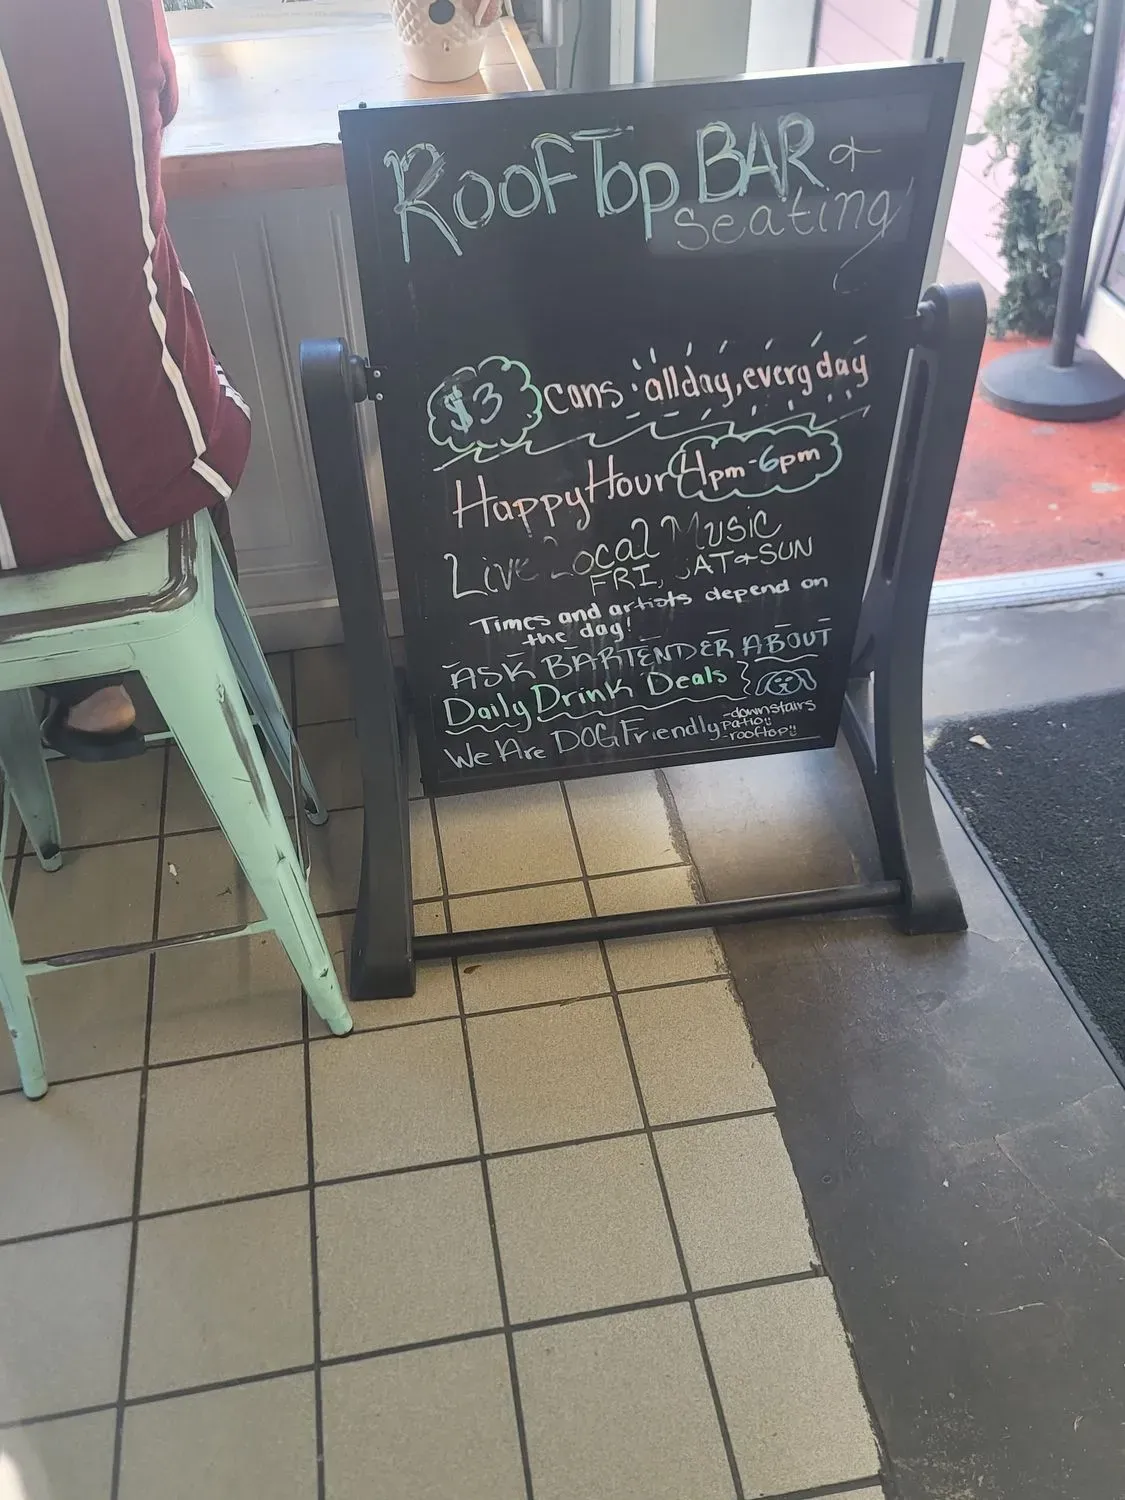 RoofTop BAR &
seating
$3 cans: all day, every day
Happy Hour 4pm-6pm
Live Local Music
FRI, SAT & SUN
Times and artists depend on
the day!
ASK BARTENDER ABOUT
Daily Drink Deals
We Are DOG Friendly
-downstairs
patio!!
-rooftop!!